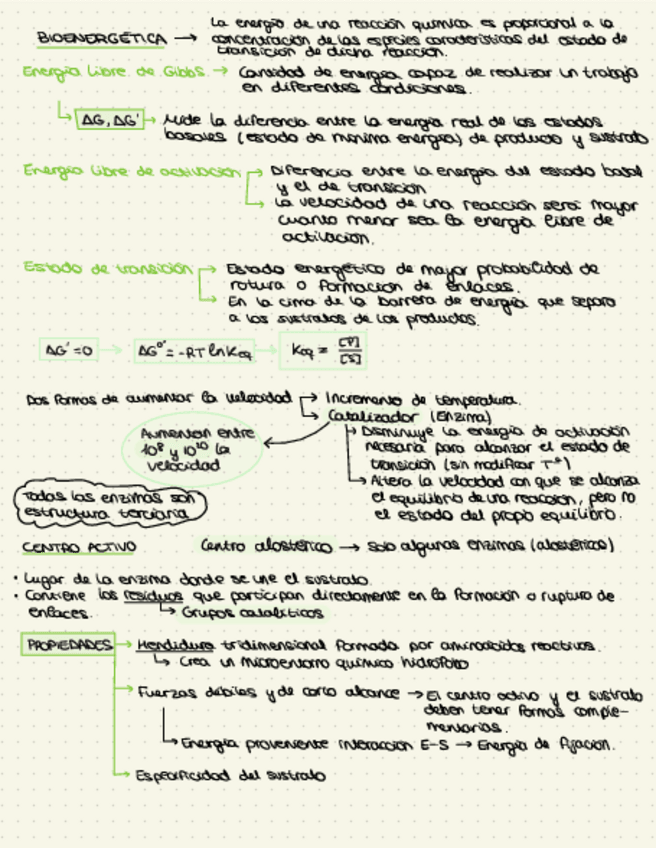 La energía de una reacción química es proporcional a la
BIOENERGÉTICA → concentración de las especies características del estado de
transición de dicha reacción.
Energía libre de Gibbs → Cantidad de energía capaz de realizar un trabajo
en diferentes condiciones.
ΔG, ΔG' → Mide la diferencia entre la energía real de los estados
basales (estado de mínima energía) de producto y sustrato
Energía libre de activación → Diferencia entre la energía del estado basal
y el de transición
→ La velocidad de una reacción será mayor
cuanto menor sea la energía libre de
activación.
Estado de transición → Estado energético de mayor probabilidad de
rotura o formación de enlaces.
→ En la cima de la barrera de energía que separa
a los sustratos de los productos.
ΔG' = 0 → ΔG°' = -RT ln Keq → Keq = [P]/[S]
Dos formas de aumentar la velocidad → Incremento de temperatura.
→ Catalizador (Enzima)
Aumentan entre
10⁸ y 10¹⁰ la
velocidad
→ Disminuye la energía de activación
necesaria para alcanzar el estado de
transición (sin modificar Tª)
→ Altera la velocidad con que se alcanza
el equilibrio de una reacción, pero no
el estado del propio equilibrio.
Todas las enzimas son
estructura terciaria
CENTRO ACTIVO Centro alostérico → Solo algunas enzimas (alostérica)
• Lugar de la enzima donde se une el sustrato.
• Contiene los residuos que participan directamente en la formación o ruptura de
enlaces. → Grupos catalíticos
PROPIEDADES → Hendidura tridimensional formada por aminoácidos reactivos.
→ Crea un microentorno químico hidrófobo
→ Fuerzas débiles y de corto alcance → El centro activo y el sustrato
deben tener formas comple-
mentarias.
→ Energía proveniente interacción E-S → Energía de fijación.
→ Especificidad del sustrato